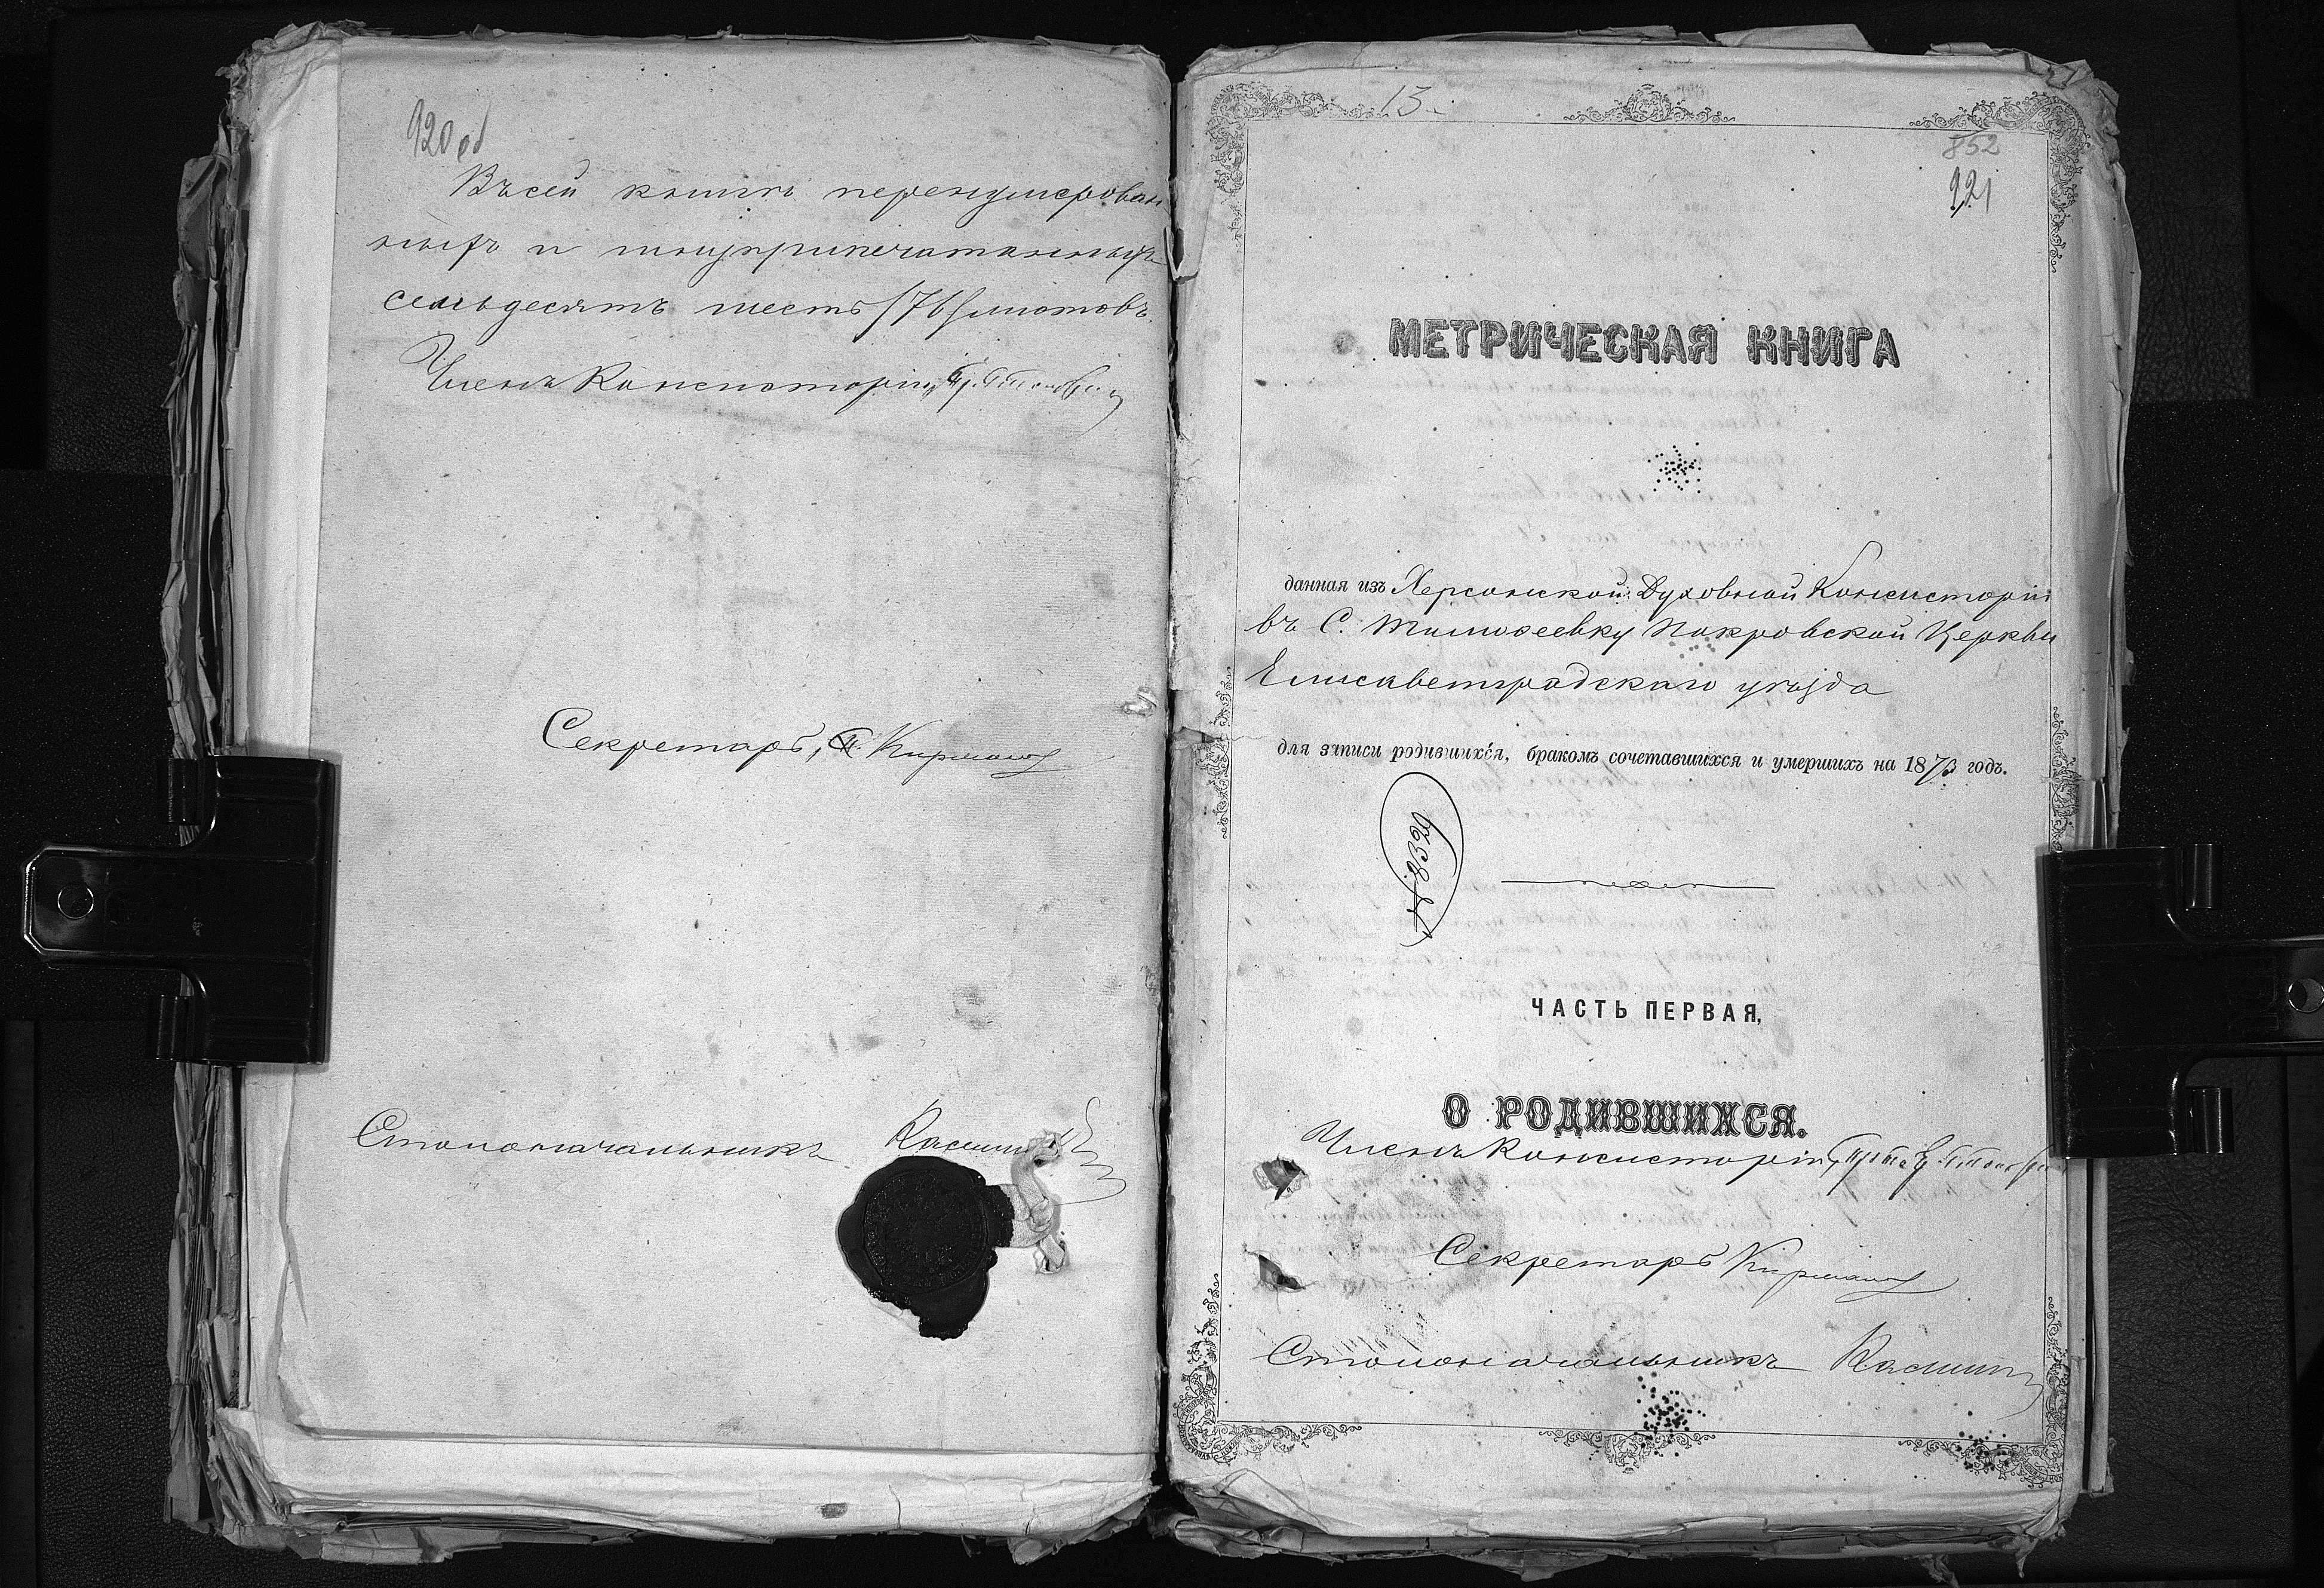 920 об
Въ сей книгѣ перенумерован
ныхъ и шнуприпечатанныхъ
семьдесятъ шесть /76/ листовъ.
Членъ Консисторіи,
Секретарь,
Столоначальникъ
13
852
921
МЕТРИЧЕСКАЯ КНИГА
данная изъ Херсонской Духовной Консисторіи
въ С. Тимоѳеевку Покровской Церкви
Елисаветградскаго уѣзда
для записи родившихся, бракомъ сочетавшихся и умершихъ на 1873 годъ.
№ 8329
ЧАСТЬ ПЕРВАЯ,
О РОДИВШИХСЯ.
Членъ Консисторіи,
Секретарь
Столоначальникъ